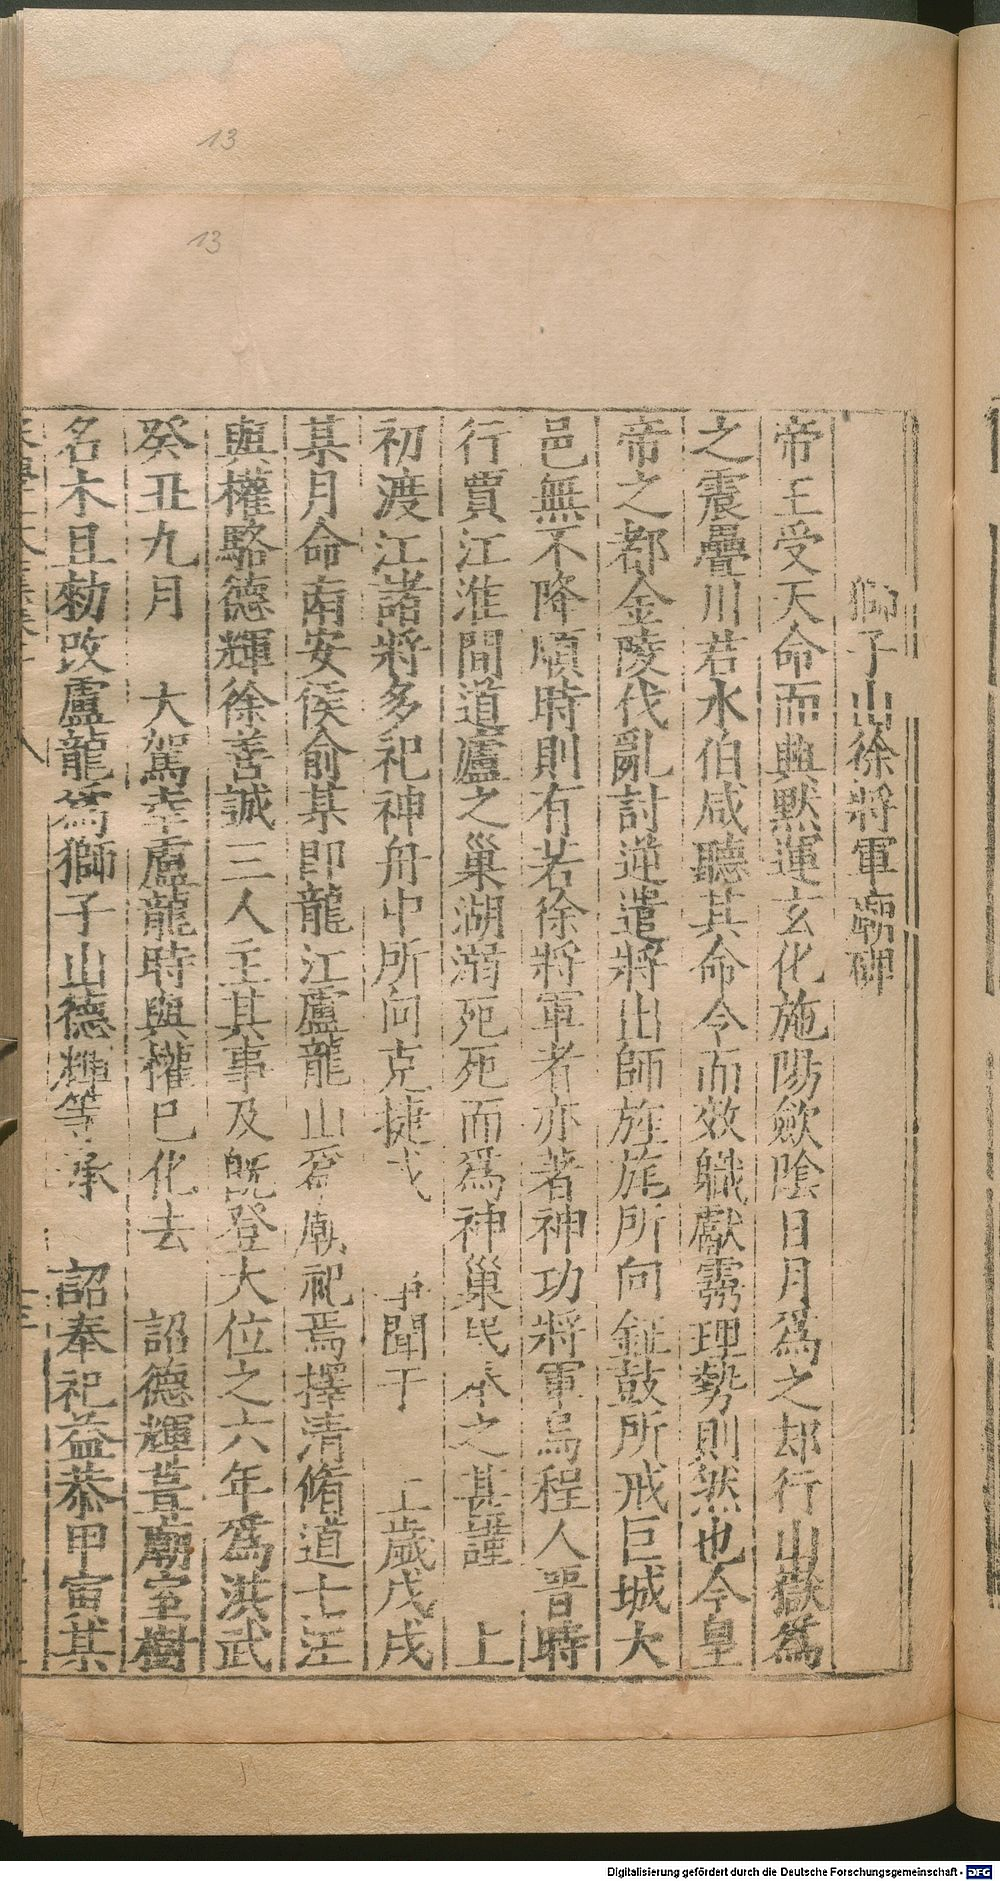 13
13
獅子山徐將軍廟碑
帝王受天命而興默運玄化施陽歛陰日月爲之却行山嶽爲
之震疊川若水伯咸聽其命令而效職獻靈理勢則然也今皇
帝之都金陵伐亂討逆遣將出師旌旄所向鉦鼓所戒巨城大
邑無不降順時則有若徐將軍者亦著神功將軍烏程人晋時
行賈江淮間道廬之巢湖溺死死而爲神巢民奉之甚謹 上
初渡江諸將多祀神舟中所向克捷或 聞于 上歲戊戌
某月命南安侯俞某即龍江盧龍山爲廟祀焉擇清脩道士汪
與權駱德輝徐善誠三人主其事及旣登大位之六年爲洪武
癸丑九月 大駕幸盧龍時與權已化去 詔德輝葺廟室樹
名木且勑改盧龍爲獅子山德輝等承 詔奉祀益恭甲寅某
Digitalisierung gefördert durch die Deutsche Forschungsgemeinschaft - DFG